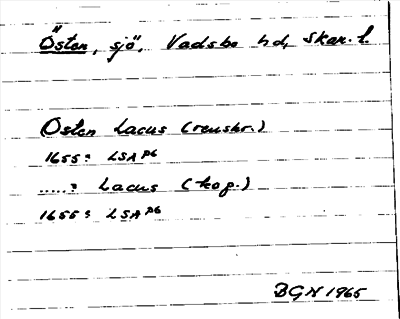 Östen, sjö, Vadsbo hd, Skar. l.
Osten Lacus (renskr.)
1655: LSA p6
.....: Lacus (kop.)
1655: LSA p6
BGN 1965